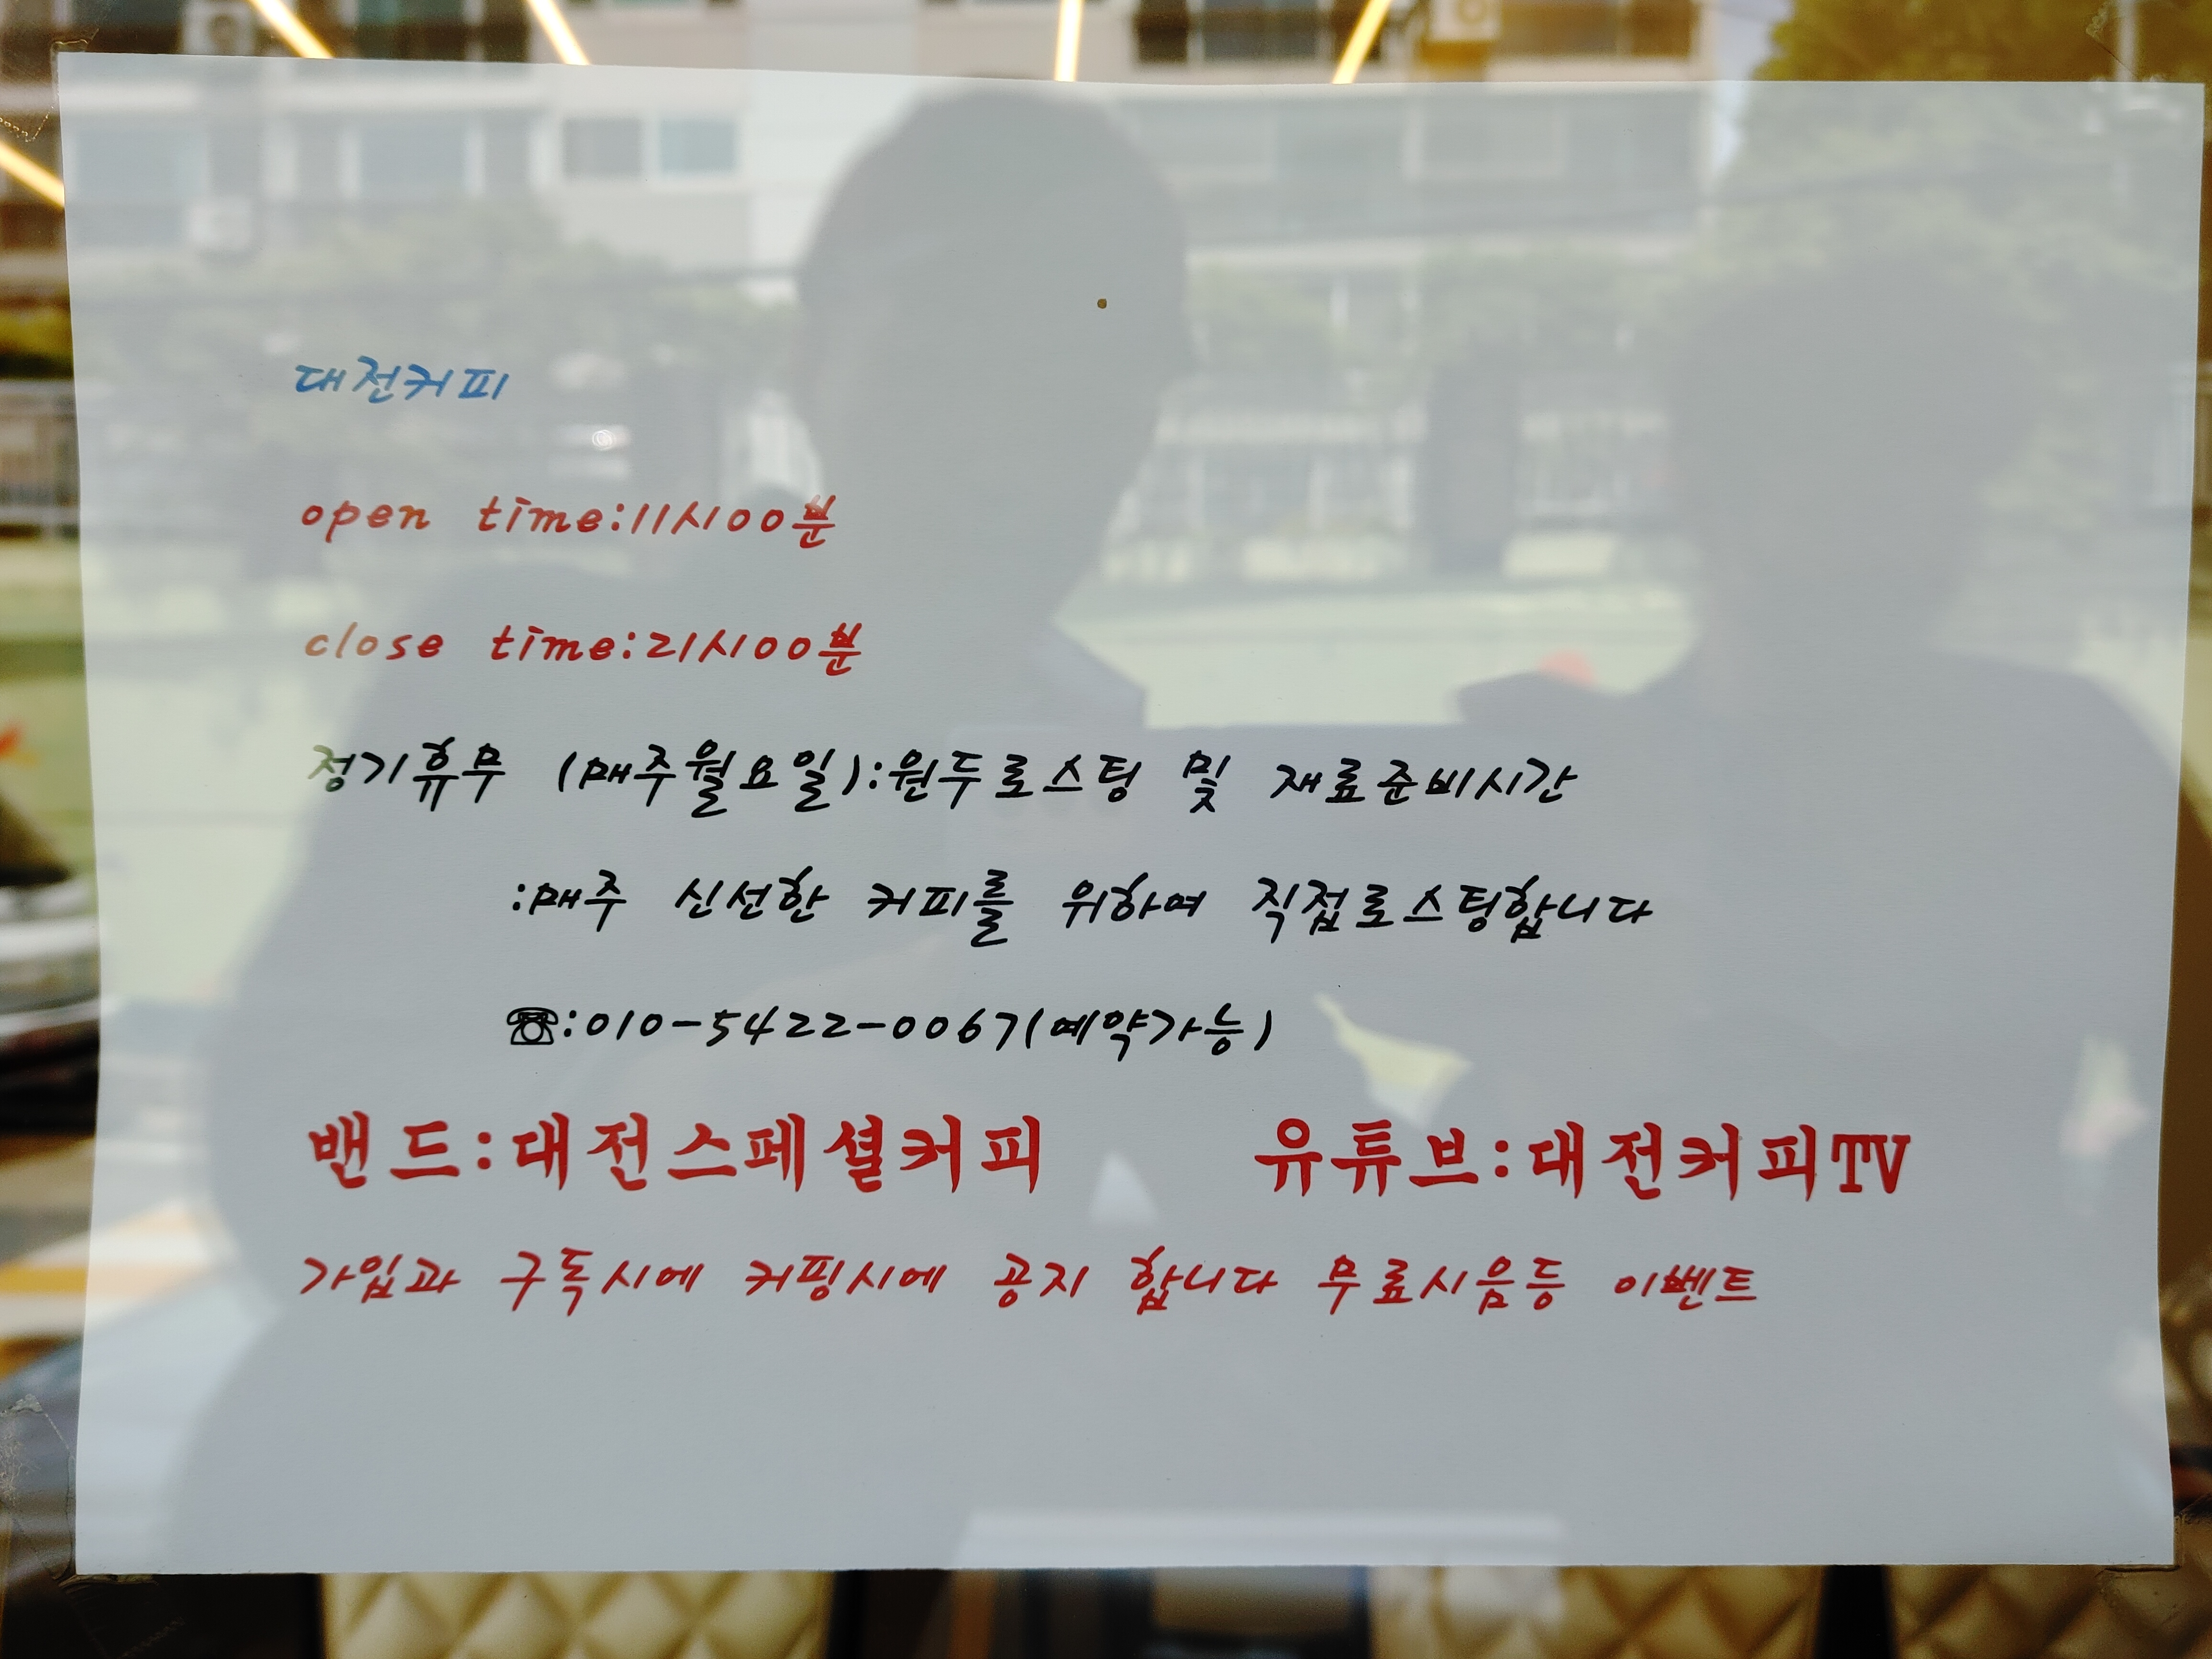 대전커피
open time:11시00분
close time:21시00분
정기휴무 (매주월요일):원두로스팅 및 재료준비시간
:매주 신선한 커피를 위하여 직접로스팅합니다
☎:010-5422-0067(예약가능)
밴드:대전스페셜커피 유튜브:대전커피TV
가입과 구독시에 커핑시에 공지 합니다 무료시음등 이벤트